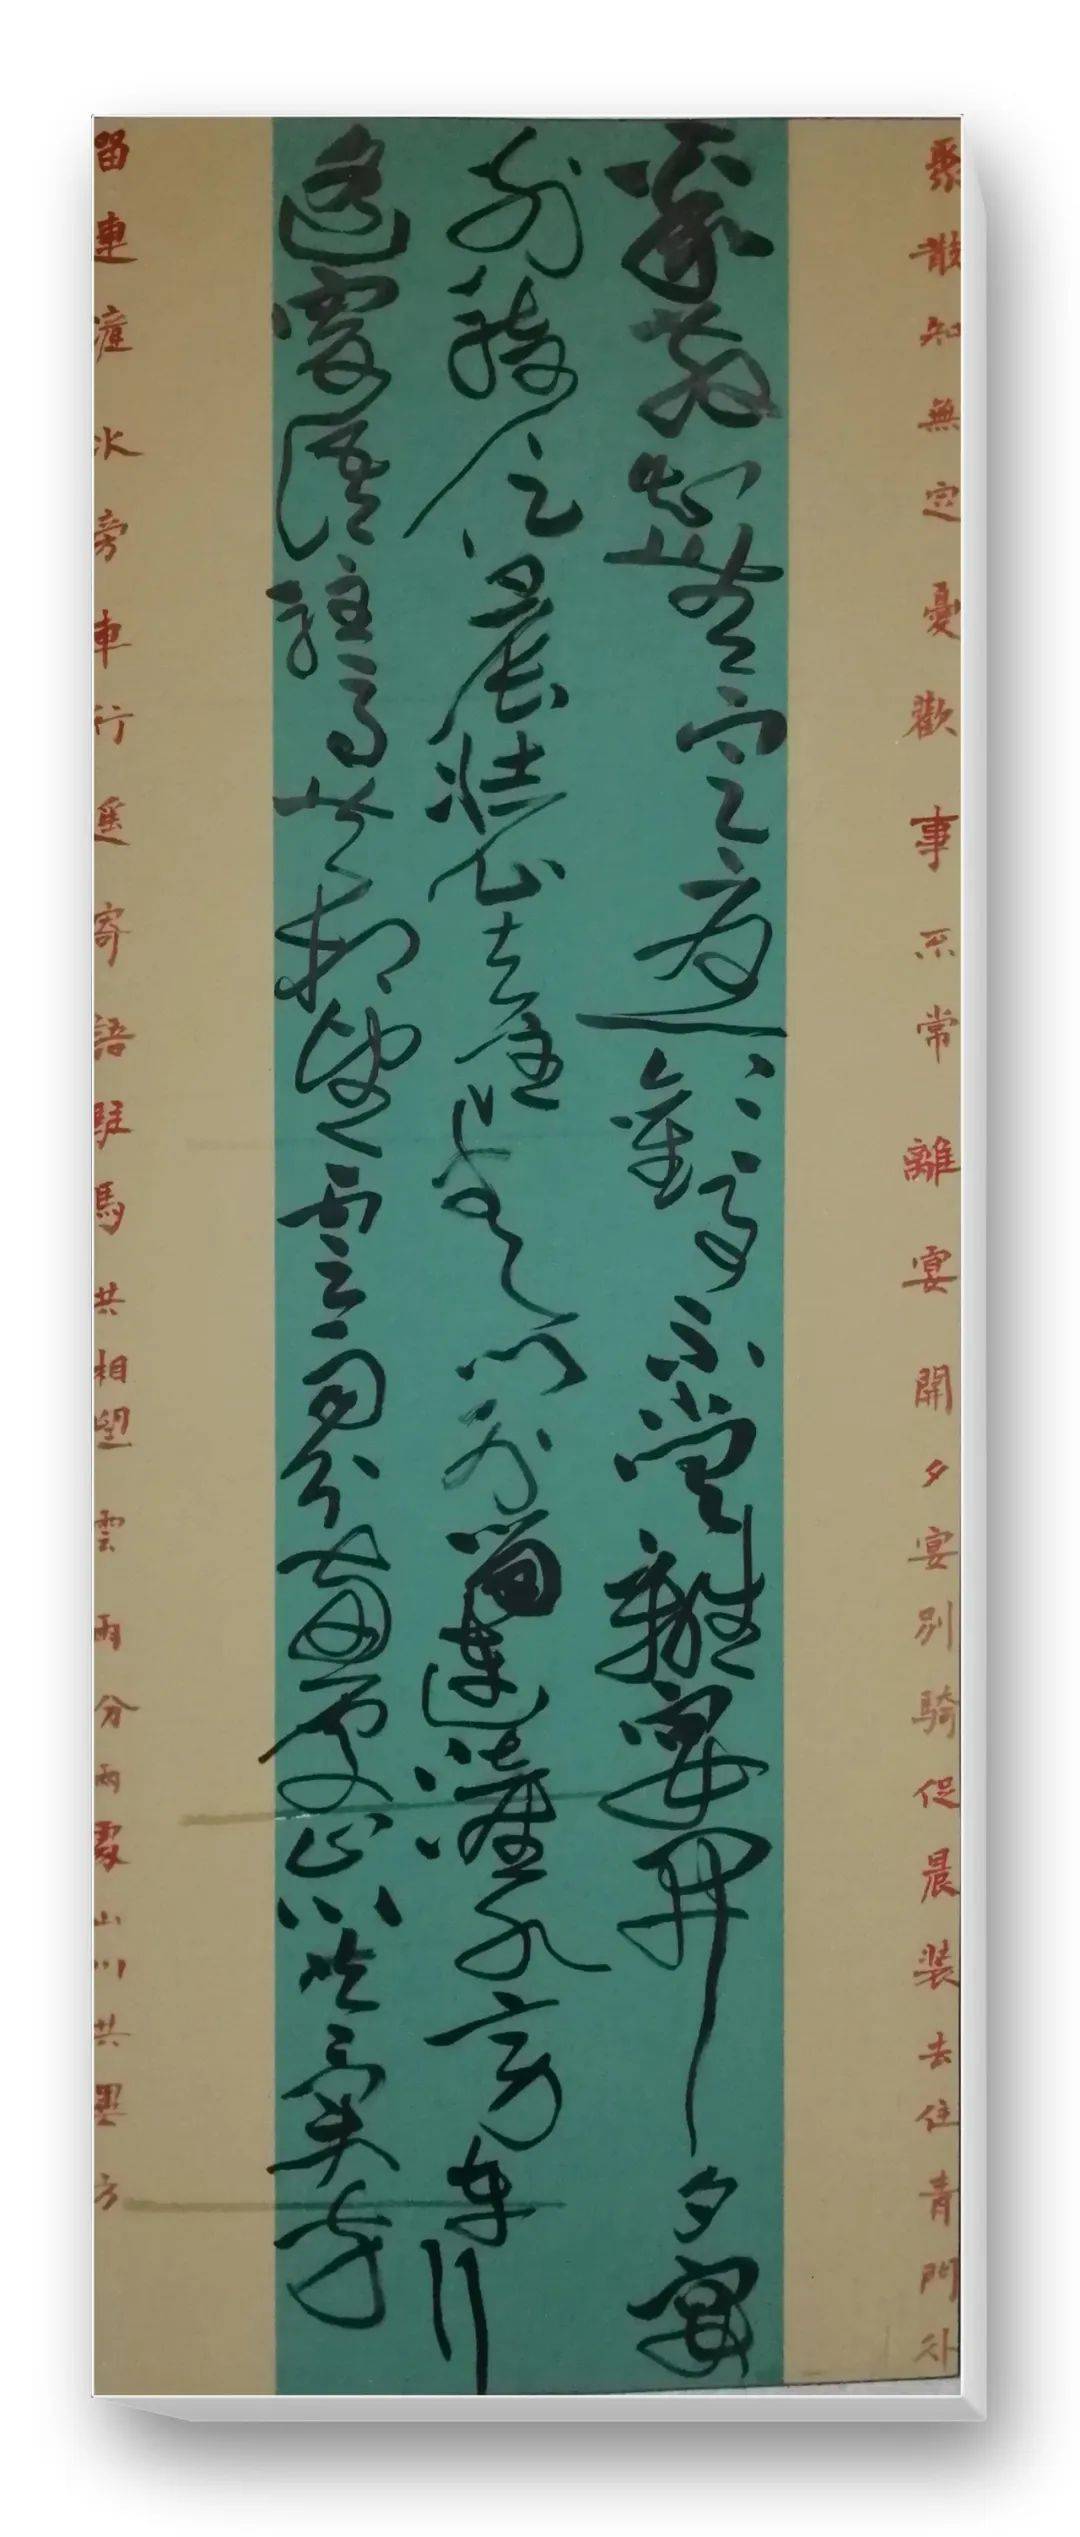 聚散知無定憂歡事不常離宴開夕宴別騎促晨裝去住青門外
聚散知無定憂歡事不常離宴開夕宴
別騎促晨裝去住青門外留連滻水旁車行
遙寄語駐馬共相望雲雨分兩處山川共異方
留連滻水旁車行遙寄語駐馬共相望雲雨分兩處山川共異方